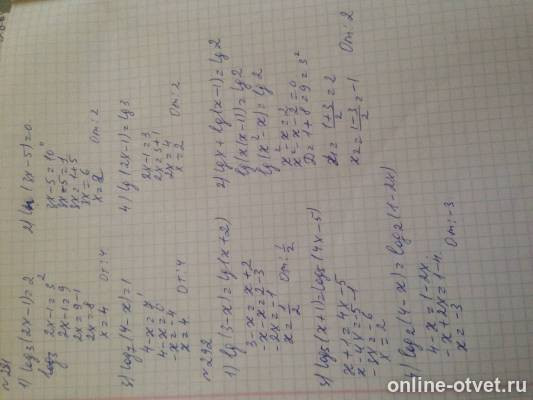 №291
1) log3(2x-1)=2
log3 2x-1=3²
2x-1=9
2x=9-1
2x=8
x=4
От: 4
2) (3x-5)=0
3x-5=10°
3x-5=1
3x=1+5
3x=6
x=2
От: 2
3) log7(4-x)=1
4-x=7¹
4-x=7
-x=-4
x=4
От: 4
4) lg(2x-1)=lg3
2x-1=3
2x=3+1
2x=4
x=2
От: 2
№292
1) lg(3-x)=lg(x+2)
3-x=x+2
-x-x=2-3
-2x=-1
x=1/2
От: 1/2
2) lgx+lg(x-1)=lg2
lg(x(x-1))=lg2
lg(x²-x)=lg2
x²-x=2
x²-x-2=0
D=1+8=9=3²
x1=(1+3)/2=2
x2=(1-3)/2=-1
От: 2
3) log5(x+1)=log5(4x-5)
x+1=4x-5
x-4x=-5-1
-3x=-6
x=2
4) log2(4-x)=log2(1-2x)
4-x=1-2x
-x+2x=1-4
x=-3
От: -3
online-otvet.ru